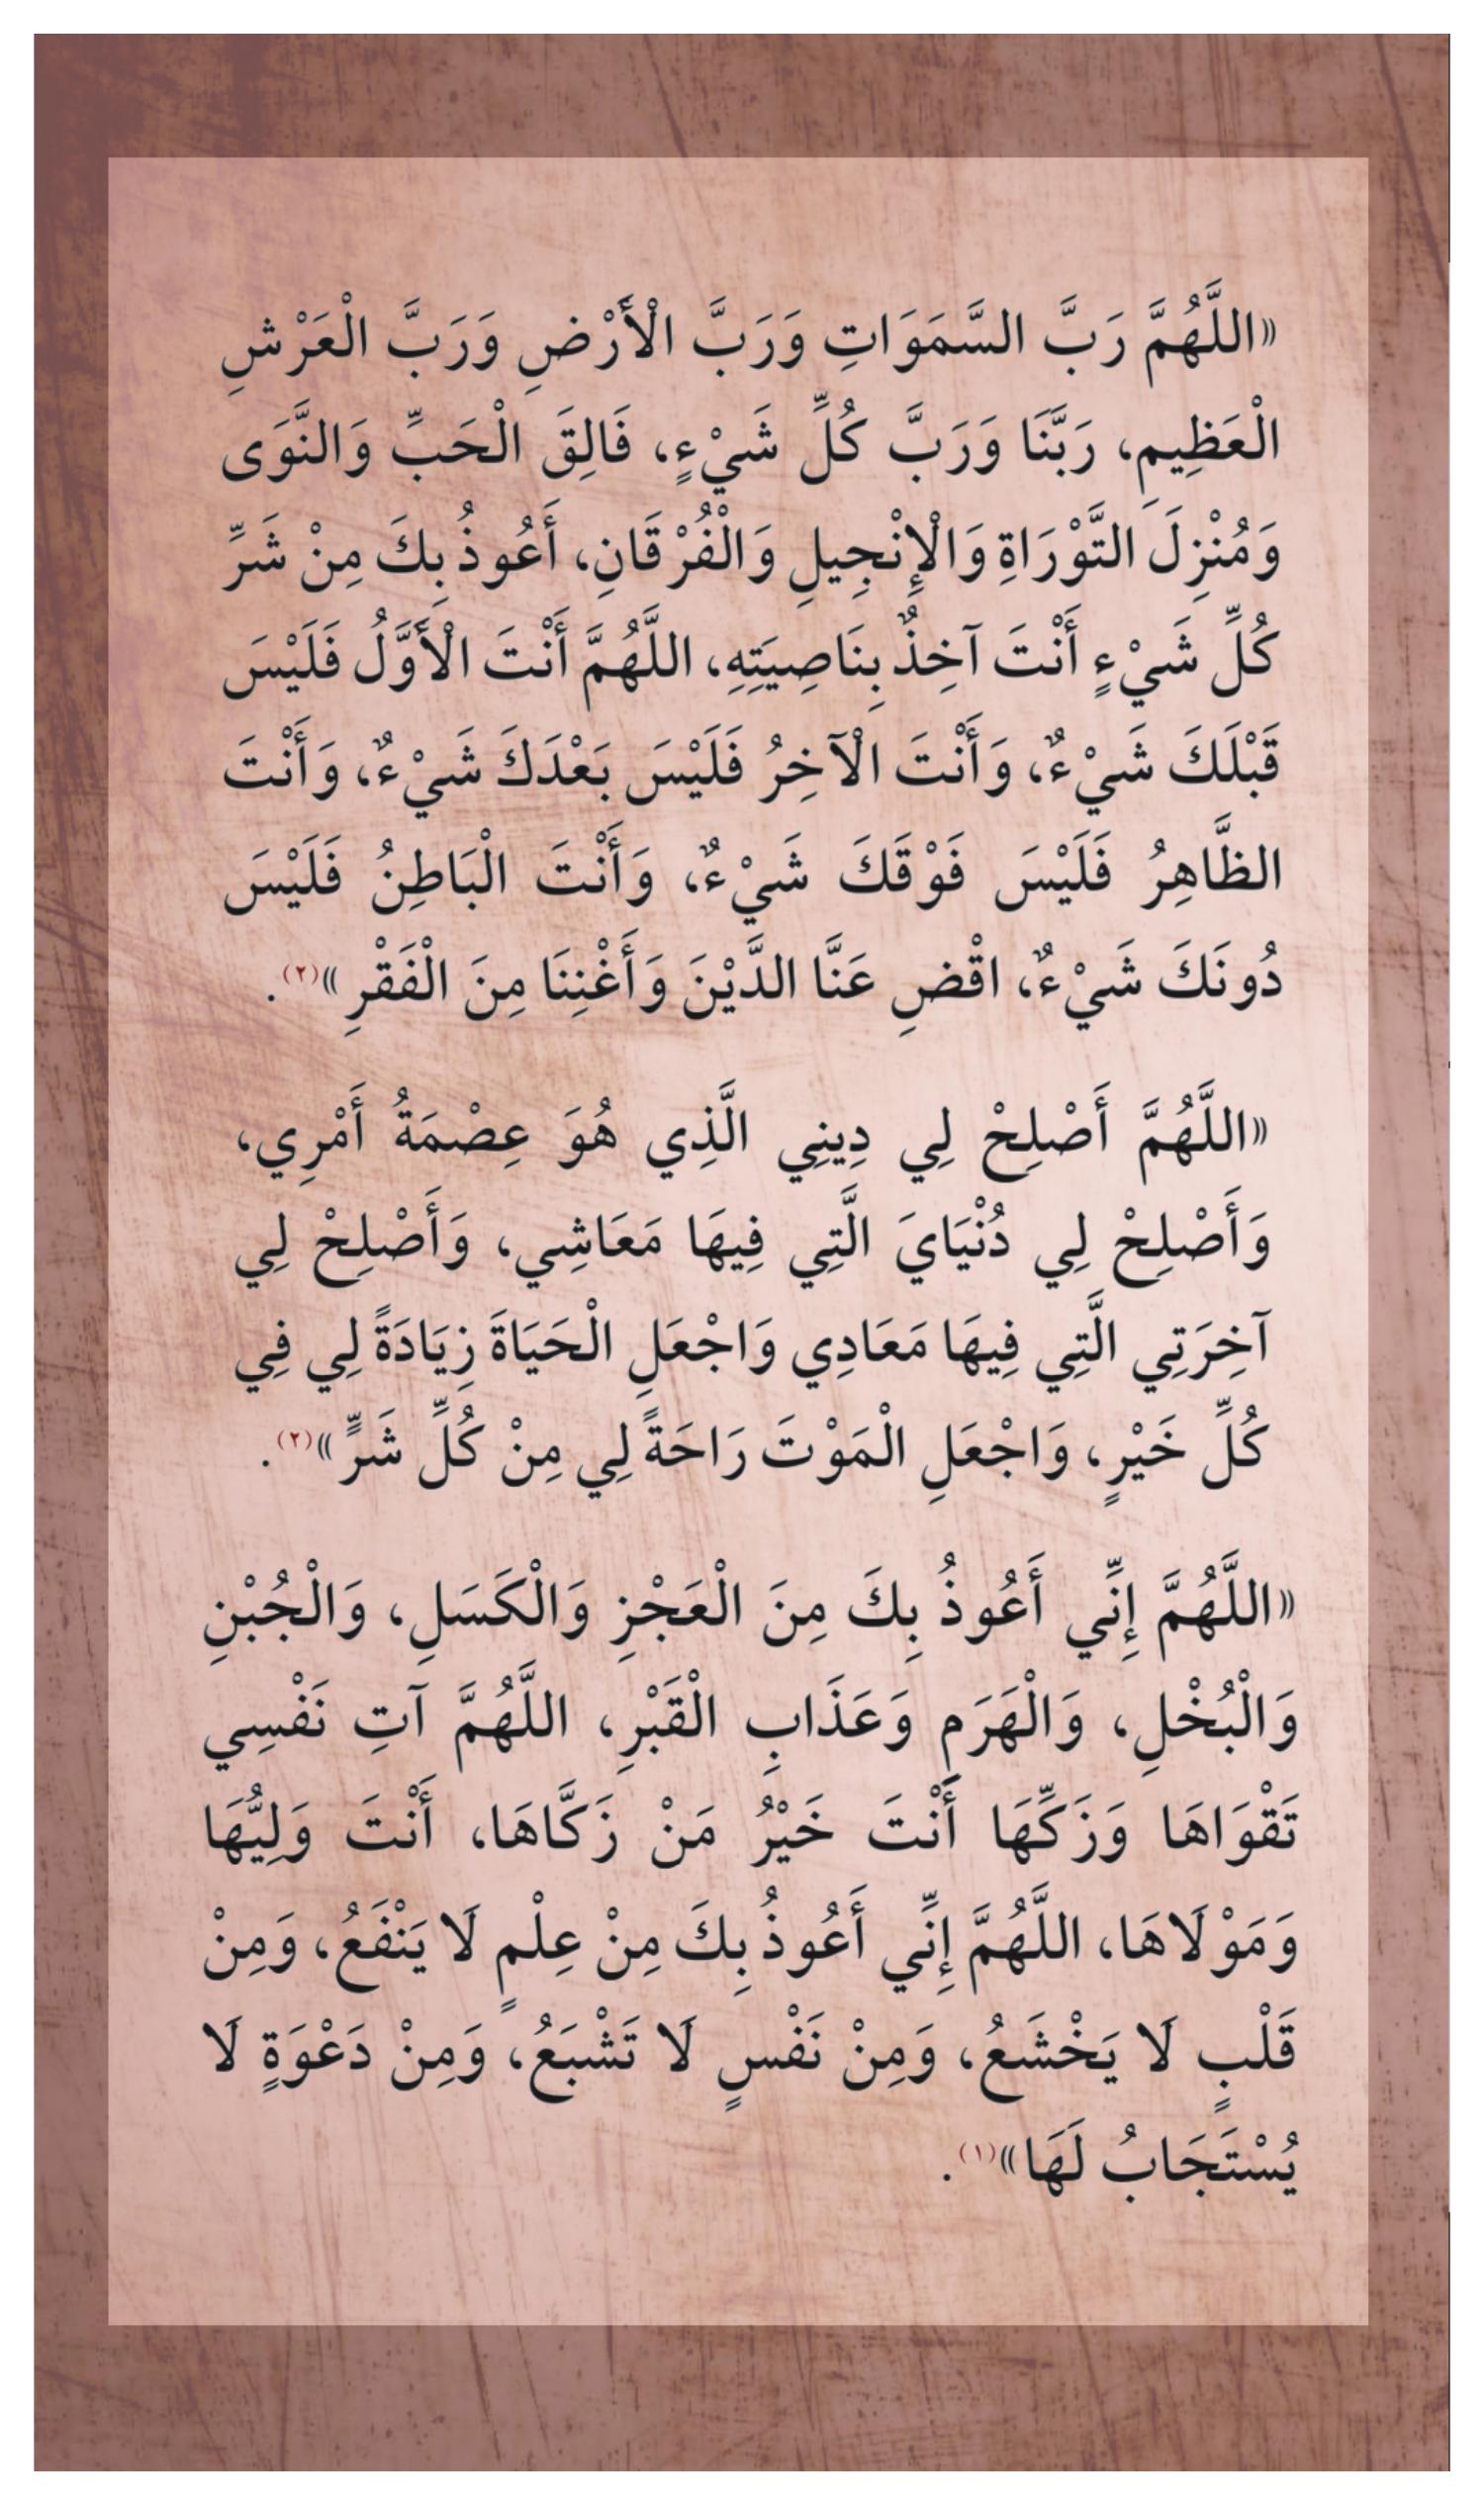 «اللَّهُمَّ رَبَّ السَّمَوَاتِ وَرَبَّ الْأَرْضِ وَرَبَّ الْعَرْشِ
الْعَظِيمِ، رَبَّنَا وَرَبَّ كُلِّ شَيْءٍ، فَالِقَ الْحَبِّ وَالنَّوَى
وَمُنْزِلَ التَّوْرَاةِ وَالْإِنْجِيلِ وَالْفُرْقَانِ، أَعُوذُ بِكَ مِنْ شَرِّ
كُلِّ شَيْءٍ أَنْتَ آخِذٌ بِنَاصِيَتِهِ، اللَّهُمَّ أَنْتَ الْأَوَّلُ فَلَيْسَ
قَبْلَكَ شَيْءٌ، وَأَنْتَ الْآخِرُ فَلَيْسَ بَعْدَكَ شَيْءٌ، وَأَنْتَ
الظَّاهِرُ فَلَيْسَ فَوْقَكَ شَيْءٌ، وَأَنْتَ الْبَاطِنُ فَلَيْسَ
دُونَكَ شَيْءٌ، اقْضِ عَنَّا الدَّيْنَ وَأَغْنِنَا مِنَ الْفَقْرِ »(٢).
«اللَّهُمَّ أَصْلِحْ لِي دِينِي الَّذِي هُوَ عِصْمَةُ أَمْرِي،
وَأَصْلِحْ لِي دُنْيَايَ الَّتِي فِيهَا مَعَاشِي، وَأَصْلِحْ لِي
آخِرَتِي الَّتِي فِيهَا مَعَادِي وَاجْعَلِ الْحَيَاةَ زِيَادَةً لِي فِي
كُلِّ خَيْرٍ، وَاجْعَلِ الْمَوْتَ رَاحَةً لِي مِنْ كُلِّ شَرٍّ»(٢).
«اللَّهُمَّ إِنِّي أَعُوذُ بِكَ مِنَ الْعَجْزِ وَالْكَسَلِ، وَالْجُبْنِ
وَالْبُخْلِ، وَالْهَرَمِ وَعَذَابِ الْقَبْرِ، اللَّهُمَّ آتِ نَفْسِي
تَقْوَاهَا وَزَكِّهَا أَنْتَ خَيْرُ مَنْ زَكَّاهَا، أَنْتَ وَلِيُّهَا
وَمَوْلَاهَا، اللَّهُمَّ إِنِّي أَعُوذُ بِكَ مِنْ عِلْمٍ لَا يَنْفَعُ، وَمِنْ
قَلْبٍ لَا يَخْشَعُ، وَمِنْ نَفْسٍ لَا تَشْبَعُ، وَمِنْ دَعْوَةٍ لَا
يُسْتَجَابُ لَهَا»(١).